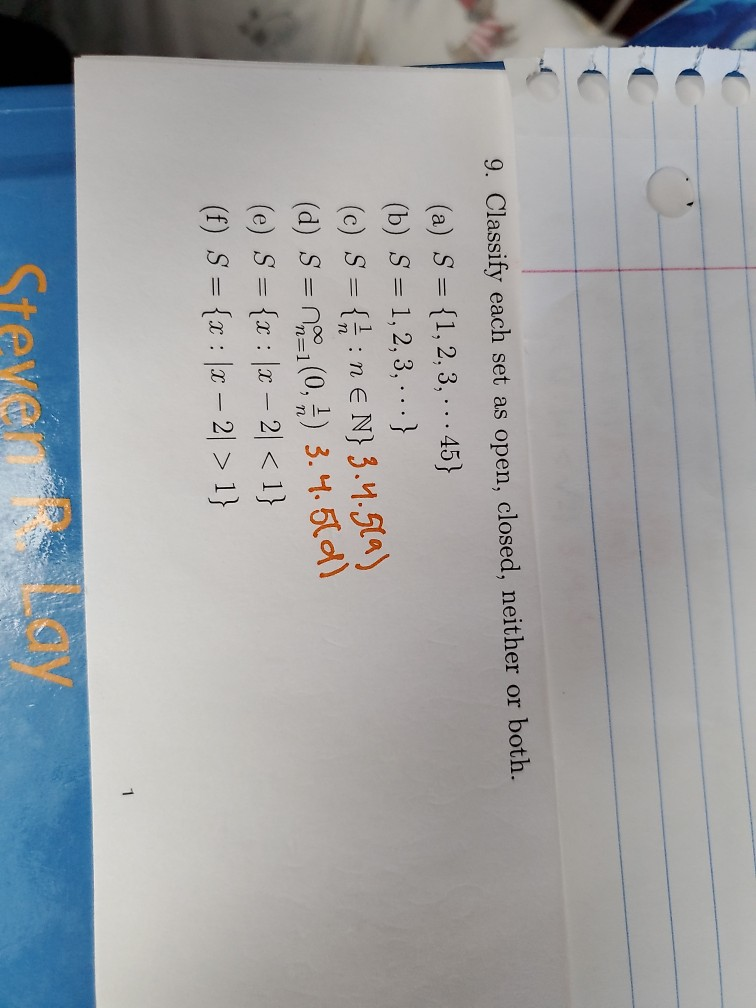 9. Classify each set as open, closed, neither or both.
(a) S = {1, 2, 3, ⋯ 45}
(b) S = 1, 2, 3, ⋯}
(c) S = {1/n : n ∈ ℕ} 3.4.5(a)
(d) S = ∩_{n=1}^∞ (0, 1/n) 3.4.5(d)
(e) S = {x : |x − 2| < 1}
(f) S = {x : |x − 2| > 1}
1
Steven R. Lay